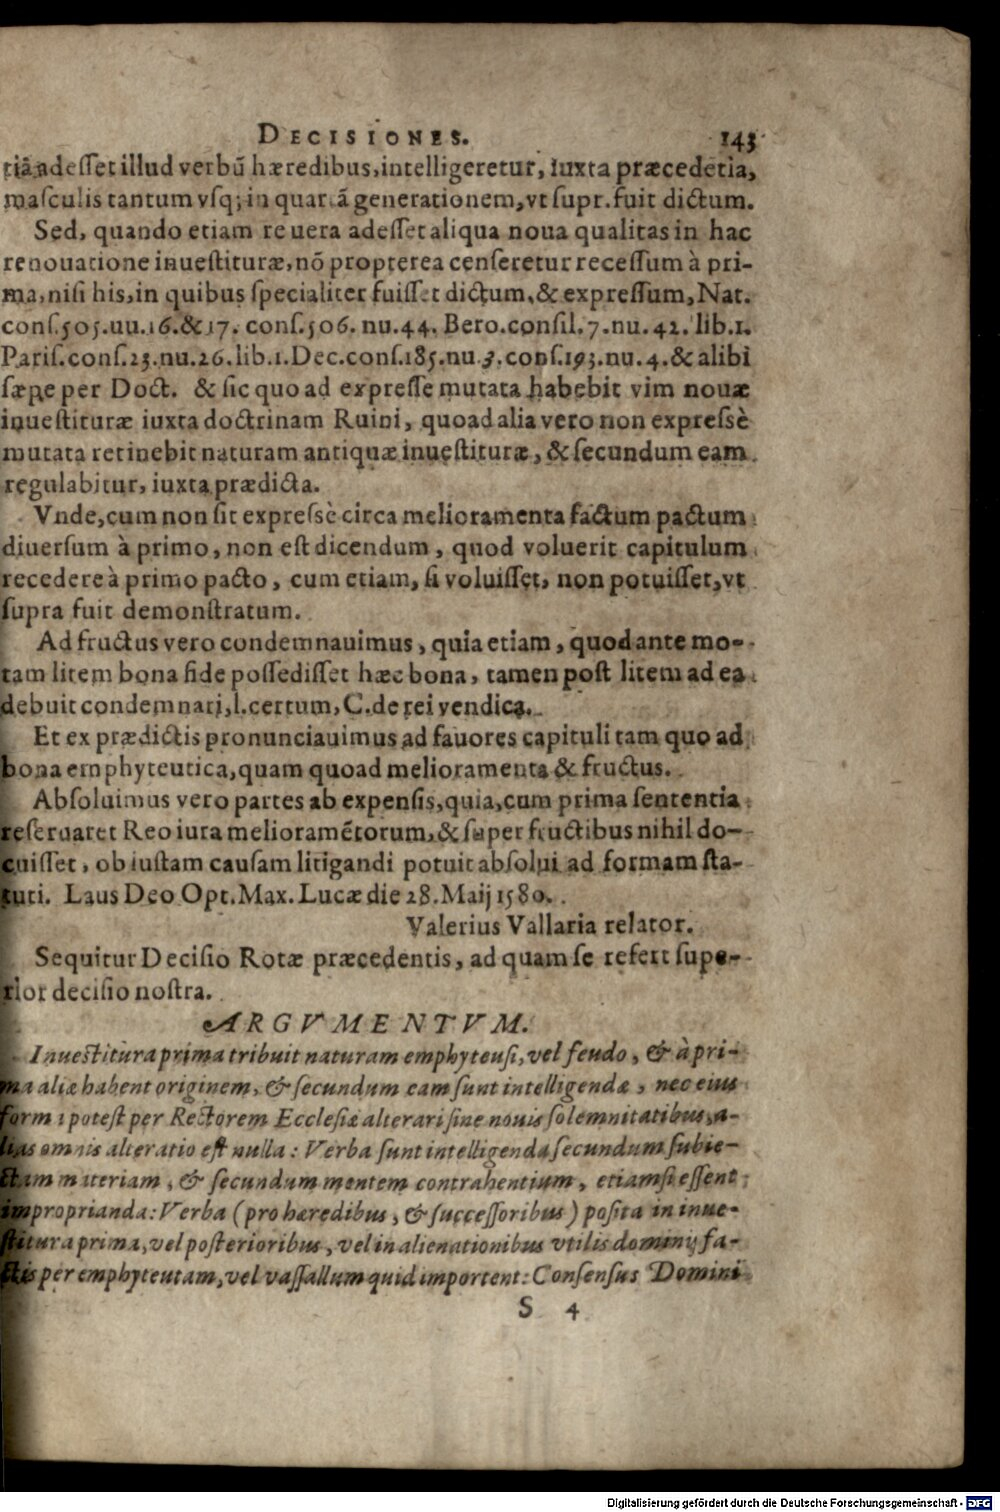 DECISIONES. 143
tiā adesset illud verbū hæredibus, intelligeretur, iuxta præcedētia,
masculis tantum vsq; in quartā generationem, vt supr. fuit dictum.
Sed, quando etiam re uera adesset aliqua noua qualitas in hac
renouatione inuestituræ, nō propterea censeretur recessum à pri-
ma, nisi his, in quibus specialiter fuisset dictum, & expressum, Nat.
cons. 505. uu. 16. & 17. cons. 506. nu. 44. Bero. consil. 7. nu. 42. lib. 1.
Paris. cons. 23. nu. 26. lib. 1. Dec. cons. 185. nu. 3. cons. 193. nu. 4. & alibi
sæpe per Doct. & sic quo ad expresse mutata habebit vim nouæ
inuestituræ iuxta doctrinam Ruini, quoad alia vero non expressè
mutata retinebit naturam antiquæ inuestituræ, & secundum eam
regulabitur, iuxta prædicta.
Vnde, cum non sit expressè circa melioramenta factum pactum
diuersum à primo, non est dicendum, quod voluerit capitulum
recedere à primo pacto, cum etiam, si voluisset, non potuisset, vt
supra fuit demonstratum.
Ad fructus vero condemnauimus, quia etiam, quod ante mo-
tam litem bona fide possedisset hæc bona, tamen post litem ad ea
debuit condemnari, l. certum, C. de rei vendica.
Et ex prædictis pronunciauimus ad fauores capituli tam quo ad
bona emphyteutica, quam quoad melioramenta & fructus.
Absoluimus vero partes ab expensis, quia, cum prima sententia
reseruaret Reo iura melioramētorum, & super fructibus nihil do-
cuisset, ob iustam causam litigandi potuit absolui ad formam sta-
tuti. Laus Deo Opt. Max. Lucæ die 28. Maij 1580.
Valerius Vallaria relator.
Sequitur Decisio Rotæ præcedentis, ad quam se refert supe-
rior decisio nostra.
ARGVMENTVM.
Inuestitura prima tribuit naturam emphyteusi, vel feudo, & à pri-
ma aliæ habent originem, & secundum eam sunt intelligendæ, nec eius
forma potest per Rectorem Ecclesiæ alterari sine nouis solemnitatibus, a-
lias omnis alteratio est nulla: Verba sunt intelligenda secundum subie-
ctam materiam, & secundum mentem contrahentium, etiamsi essent
improprianda: Verba (pro hæredibus, & successoribus) posita in inue-
stitura prima, vel posterioribus, vel in alienationibus vtilis dominij fa-
ctis per emphyteutam, vel vassallum quid importent: Consensus Domini
S 4
Digitalisierung gefördert durch die Deutsche Forschungsgemeinschaft - DFG